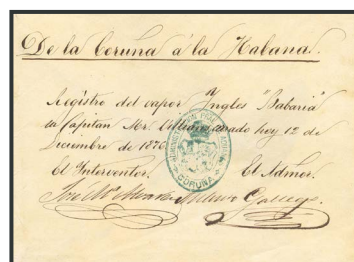 De la Coruna á la Habana.
Registro del vapor Ingles "Babaria"
su Capitan Mr. Williams anado hoy 12 de
Diciembre de 1876
El Interventor. El Admor.
CORUÑA
Gallego.